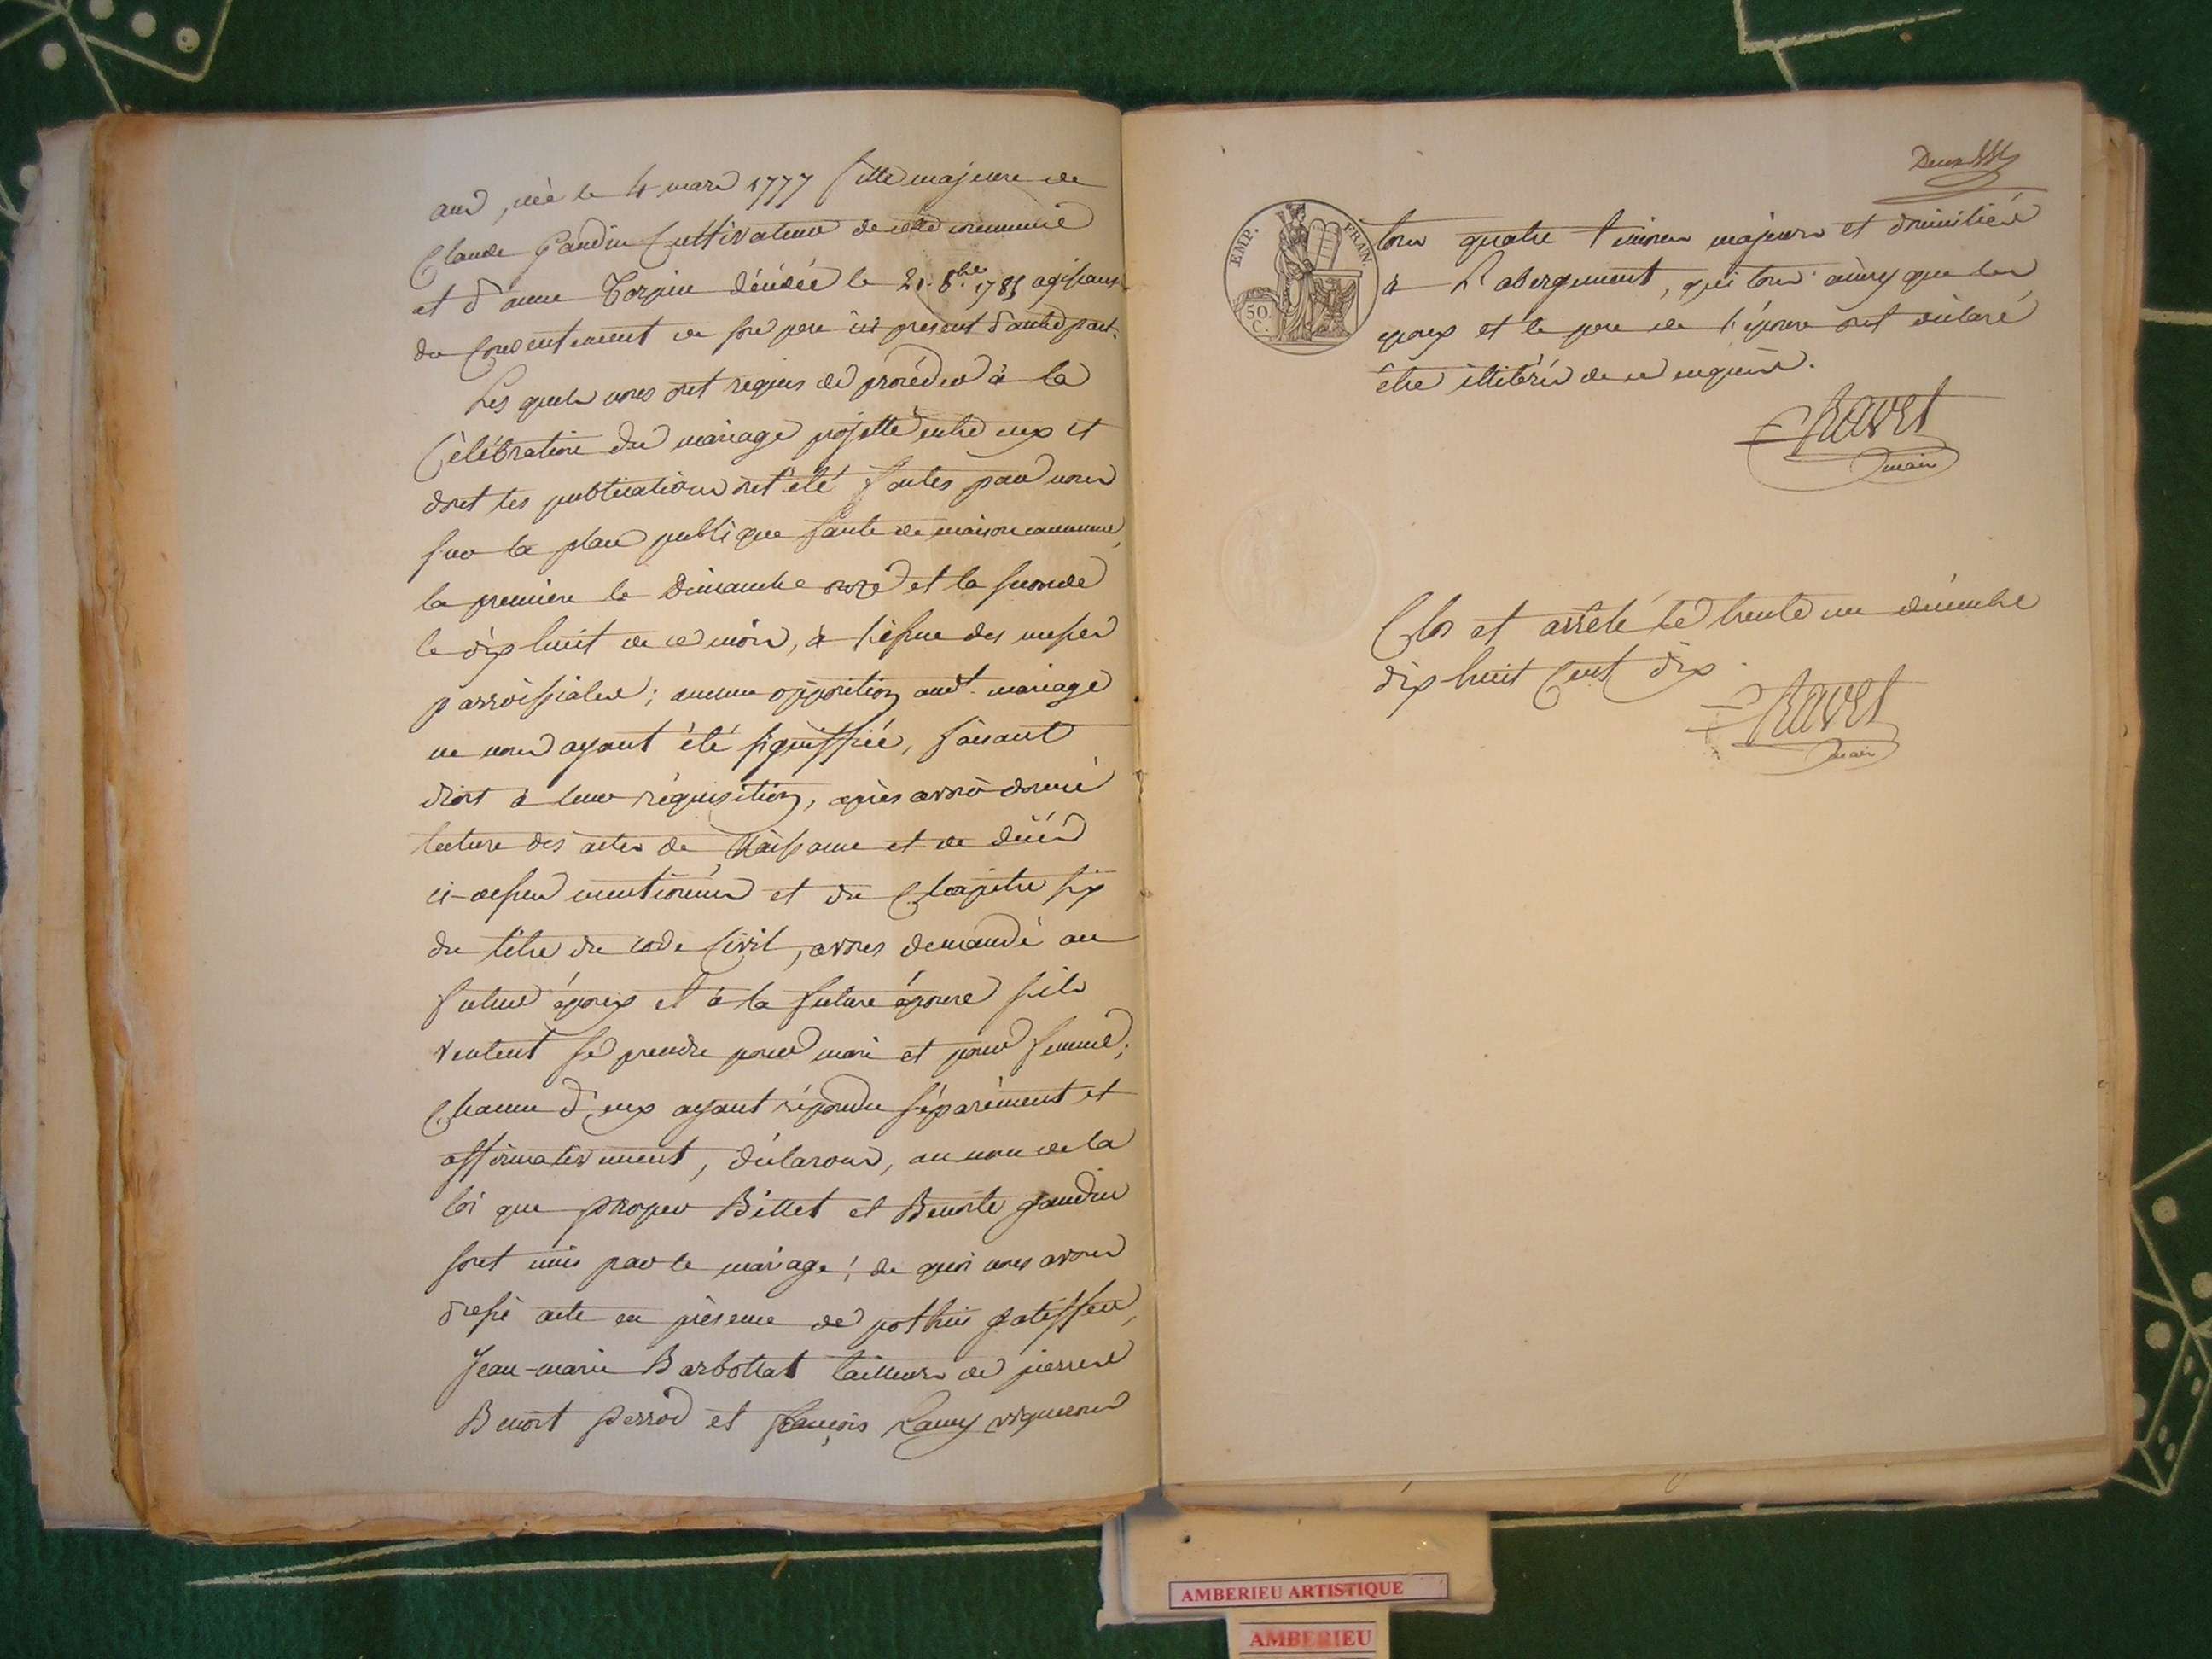 ans, née le 4 mars 1777 fille majeure de
Claude Gaudin Cultivateur de cette commune
et d'anne décédée le 21 8.bre 1785 agissant
du Consentement de son pere ici present d'autre part.
Les quels nous ont requis de procéder à la
Célébration du mariage projetté entre eux et
dont les publications ont été faites par nous
sur la place publique faute de maison commune,
la premiere le Dimanche onze et la seconde
le dix huit de ce mois, à l'issue des messes
parroissiales; aucune opposition audt. mariage
ne nous ayant été signiffiée, faisant
droit à leur réquisition, après avoir donné
lecture des actes de Naissance et de décés
ci-dessus mentionnés et du Chapitre six
du titre du code Civil, avons demandé au
futur époux et à la future épouse s'ils
veulent se prendre pour mari et pour femme;
Chacun d'eux ayant répondu séparément et
affirmativement, déclarons, au nom de la
loi que prosper Billet et Benoite gaudin
sont unis par le mariage; de quoi nous avons
dressé acte en présence de pothin
Jean-marie Barbollat tailleurs de pierres
Benoit perrod et françois Lamy vignerons
EMP. FRAN.
50 C.
tous quatre temoins majeurs et domiciliés
à L'abergement, qui tous ainsy que les
epoux et le pere de l'épouse ont déclaré
être illitérés de ce enquis.
Ravet
maire
Clos et arrêté le trente un décembre
dix huit Cent dix.
Ravet
maire
AMBERIEU ARTISTIQUE
AMBERIEU